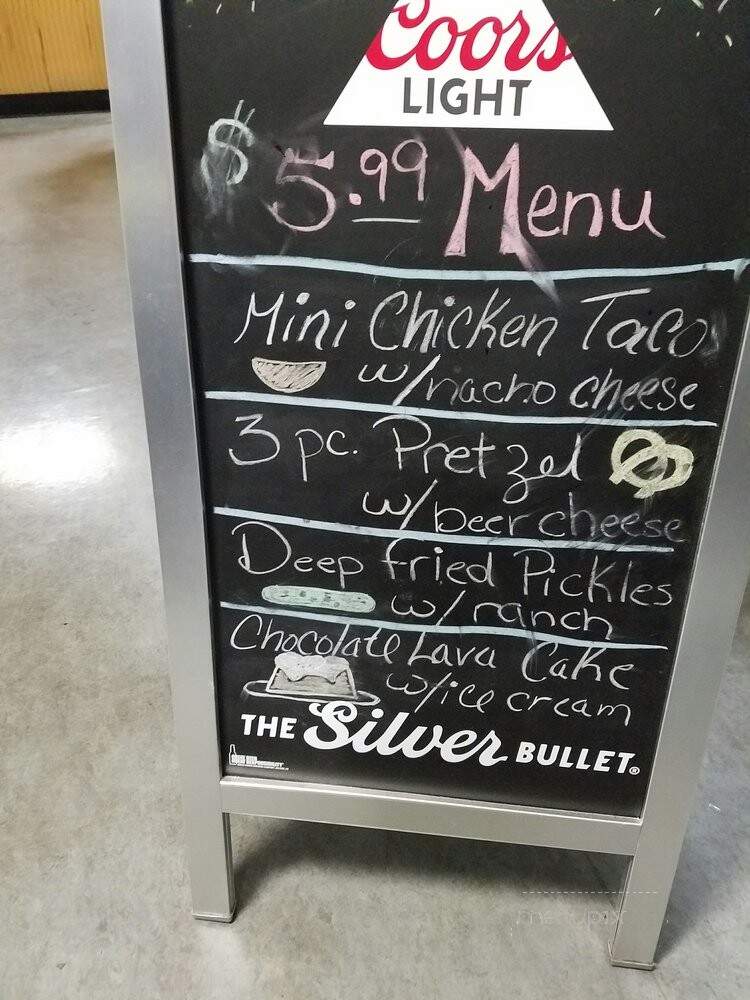 Coors
LIGHT
$5.99 Menu
Mini Chicken Taco
w/nacho cheese
3 pc. Pretzel
w/beer cheese
Deep fried Pickles
w/ranch
Chocolate Lava Cake
w/ice cream
THE Silver BULLET®
menupix